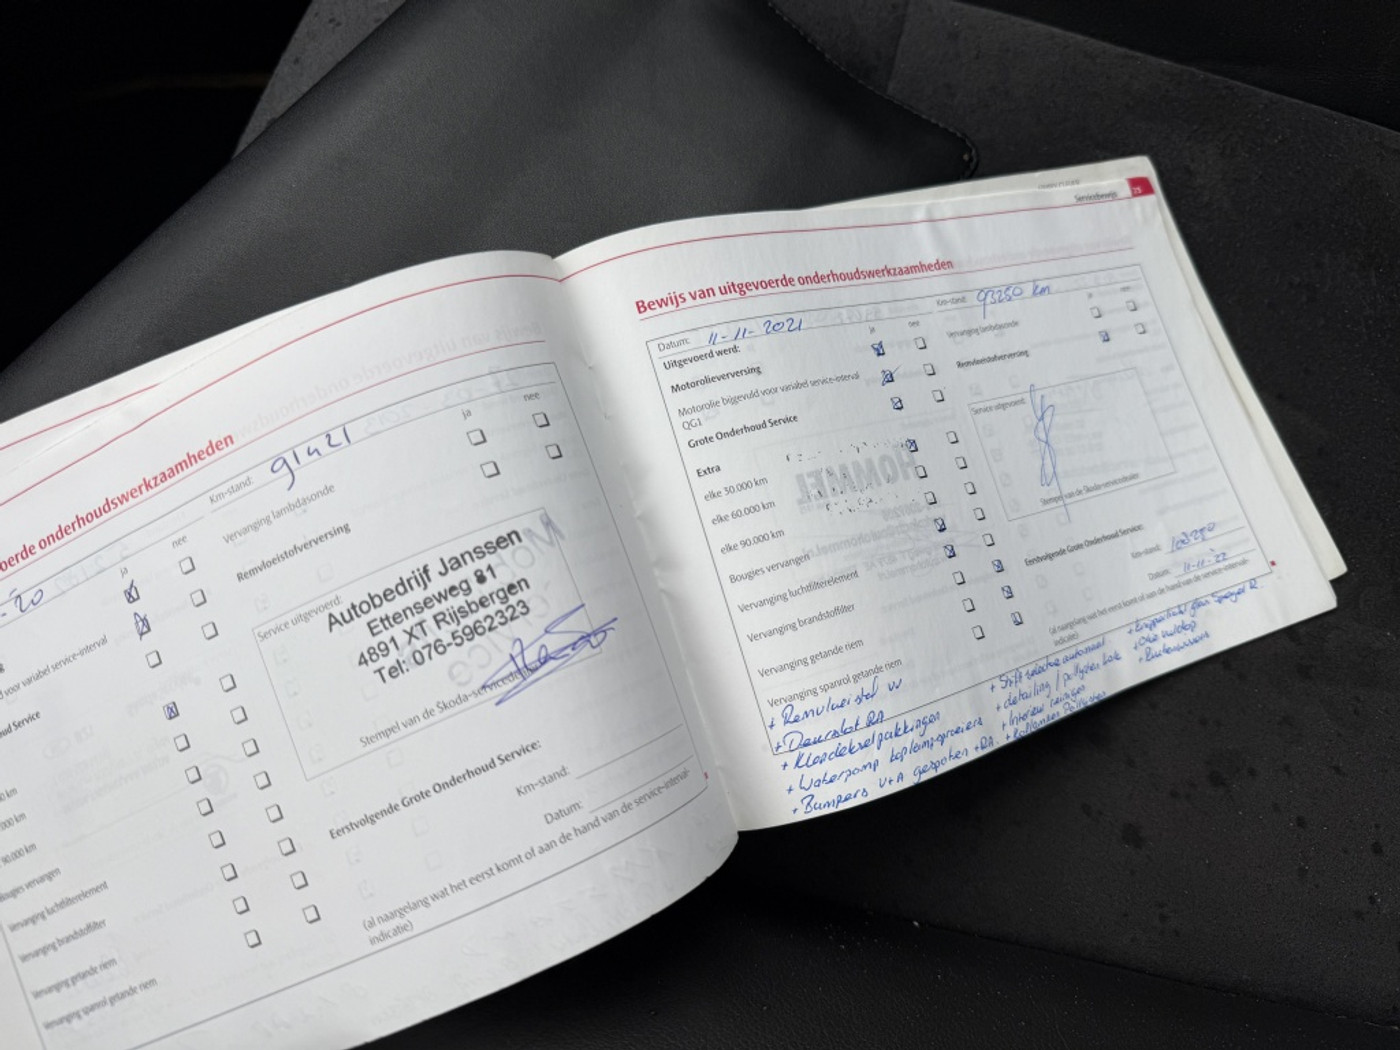 oerde onderhoudswerkzaamheden
-'20
Km-stand: 91421
ja
nee
ja
nee
Vervanging lambdasonde
Remvloeistofverversing
d voor variabel service-interval
oud Service
Service uitgevoerd:
Autobedrijf Janssen
Ettenseweg 81
4891 XT Rijsbergen
Tel: 076-5962323
Stempel van de Skoda-servicedealer
90.000 km
Bougies vervangen
Vervanging luchtfilterelement
Vervanging brandstoffilter
Vervanging getande riem
Vervanging spanrol getande riem
Eerstvolgende Grote Onderhoud Service:
Km-stand:
Datum:
(al naargelang wat het eerst komt of aan de hand van de service-interval-
indicatie)
Servicebewijs
Bewijs van uitgevoerde onderhoudswerkzaamheden
Datum: 11-11-2021
Km-stand: 93250 km
Uitgevoerd werd:
ja
nee
ja
nee
Motorolieverversing
Vervanging lambdasonde
Motorolie bijgevuld voor variabel service-interval
QG1
Remvloeistofverversing
Grote Onderhoud Service
Service uitgevoerd:
Extra
elke 30.000 km
elke 60.000 km
elke 90.000 km
Stempel van de Skoda-servicedealer
Bougies vervangen
Vervanging luchtfilterelement
Vervanging brandstoffilter
Vervanging getande riem
Vervanging spanrol getande riem
Eerstvolgende Grote Onderhoud Service:
Km-stand:
Datum: 11-11-'22
(al naargelang wat het eerst komt of aan de hand van de service-interval-
indicatie)
+ Remvloeistof VV
+ Deurslot RA
+ Klepdekselpakkingen
+ Waterpomp koplampsproeiers
+ Bumpers V+A gespoten + RA.
+ Shift selectie automaat
+ detailing / pollijsten
+ Interieur reinigen
+ Koplampen Pollijsten
+ Ruitenwissers